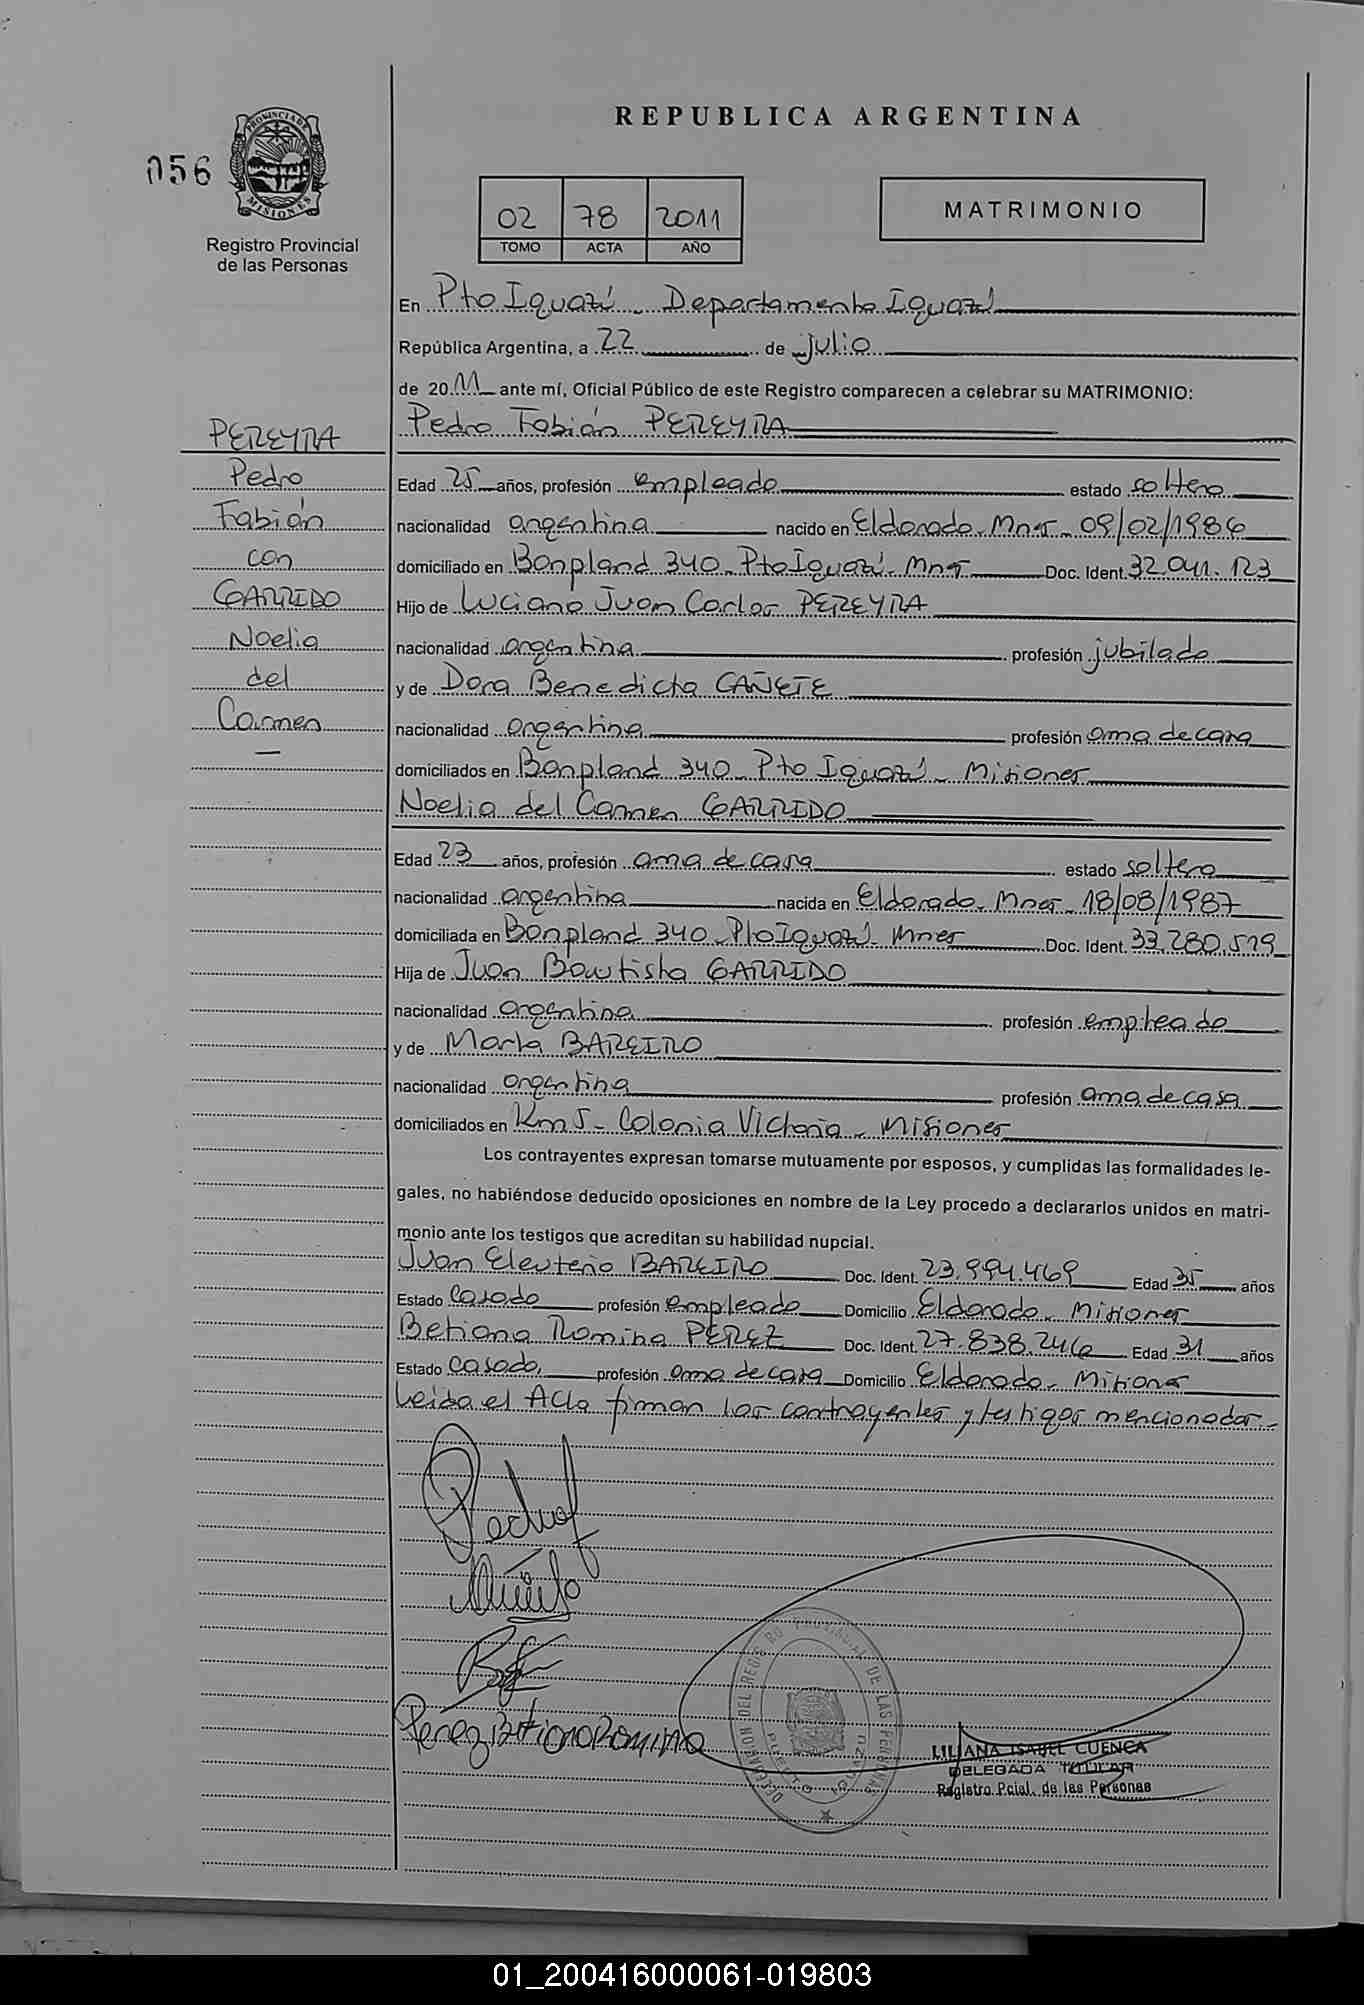 REPUBLICA ARGENTINA
056
PROVINCIA DE
MISIONES
Registro Provincial
de las Personas
02 78 2011
TOMO ACTA AÑO
MATRIMONIO
En Pto Iguazú - Departamento Iguazú
República Argentina, a 22 de julio
de 2011 ante mí, Oficial Público de este Registro comparecen a celebrar su MATRIMONIO:
Pedro Fabián PEREYRA
PEREYRA
Pedro
Fabián
con
GARRIDO
Noelia
del
Carmen
Edad 25 años, profesión empleado estado soltero
nacionalidad argentina nacido en Eldorado - Mnes - 09/02/1986
domiciliado en Bonpland 340 - Pto Iguazú - Mnes Doc. Ident. 32.041.123
Hijo de Luciano Juan Carlos PEREYRA
nacionalidad argentina profesión jubilado
y de Dora Benedicta CAÑETE
nacionalidad argentina profesión ama de casa
domiciliados en Bonpland 340 - Pto Iguazú - Misiones
Noelia del Carmen GARRIDO
Edad 23 años, profesión ama de casa estado soltera
nacionalidad argentina nacida en Eldorado - Mnes - 18/08/1987
domiciliada en Bonpland 340 - Pto Iguazú - Mnes Doc. Ident. 33.280.519
Hija de Juan Bautista GARRIDO
nacionalidad argentina profesión empleado
y de Marta BAREIRO
nacionalidad argentina profesión ama de casa
domiciliados en Km 5 - Colonia Victoria - Misiones
Los contrayentes expresan tomarse mutuamente por esposos, y cumplidas las formalidades le-
gales, no habiéndose deducido oposiciones en nombre de la Ley procedo a declararlos unidos en matri-
monio ante los testigos que acreditan su habilidad nupcial.
Juan Eleuterio BAREIRO Doc. Ident. 23.994.469 Edad 35 años
Estado casado profesión empleado Domicilio Eldorado - Misiones
Betiana Romina PEREZ Doc. Ident. 27.838.246 Edad 31 años
Estado casada, profesión ama de casa Domicilio Eldorado - Misiones
Leída el Acta firman los contrayentes y testigos mencionados -
Perez Betiana Romina
DELEGACION DEL REGISTRO PROVINCIAL DE LAS PERSONAS
PUERTO IGUAZU
LILIANA ISABEL CUENCA
DELEGADA TITULAR
Registro Pcial. de las Personas
01_200416000061-019803